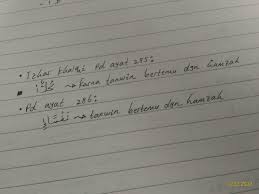 • Izhar Khalqi Pd ayat 285:
→ Karna tanwin bertemu dgn hamzah
• Pd ayat 286:
→ tanwin bertemu dgn hamzah